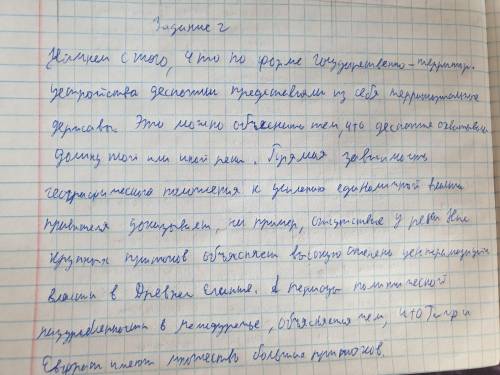 Задание 2
Начнем с того, что по форме государственно-территор.
устройства деспотии представляли из себя территориальные
державы. Это можно объяснить тем, что деспотия охватывала
долину той или иной реки. Прямая зависимость
географического положения к усилению единоличной власти
правителя доказывает, на пример, отсутствие у реки Нил
крупных притоков объясняет высокую степень централизации
власти в Древнем Египте. А периоды политической
раздробленности в Междуречье, объясняется тем, что Тигр и
Евфрат имеют множество больших притоков.